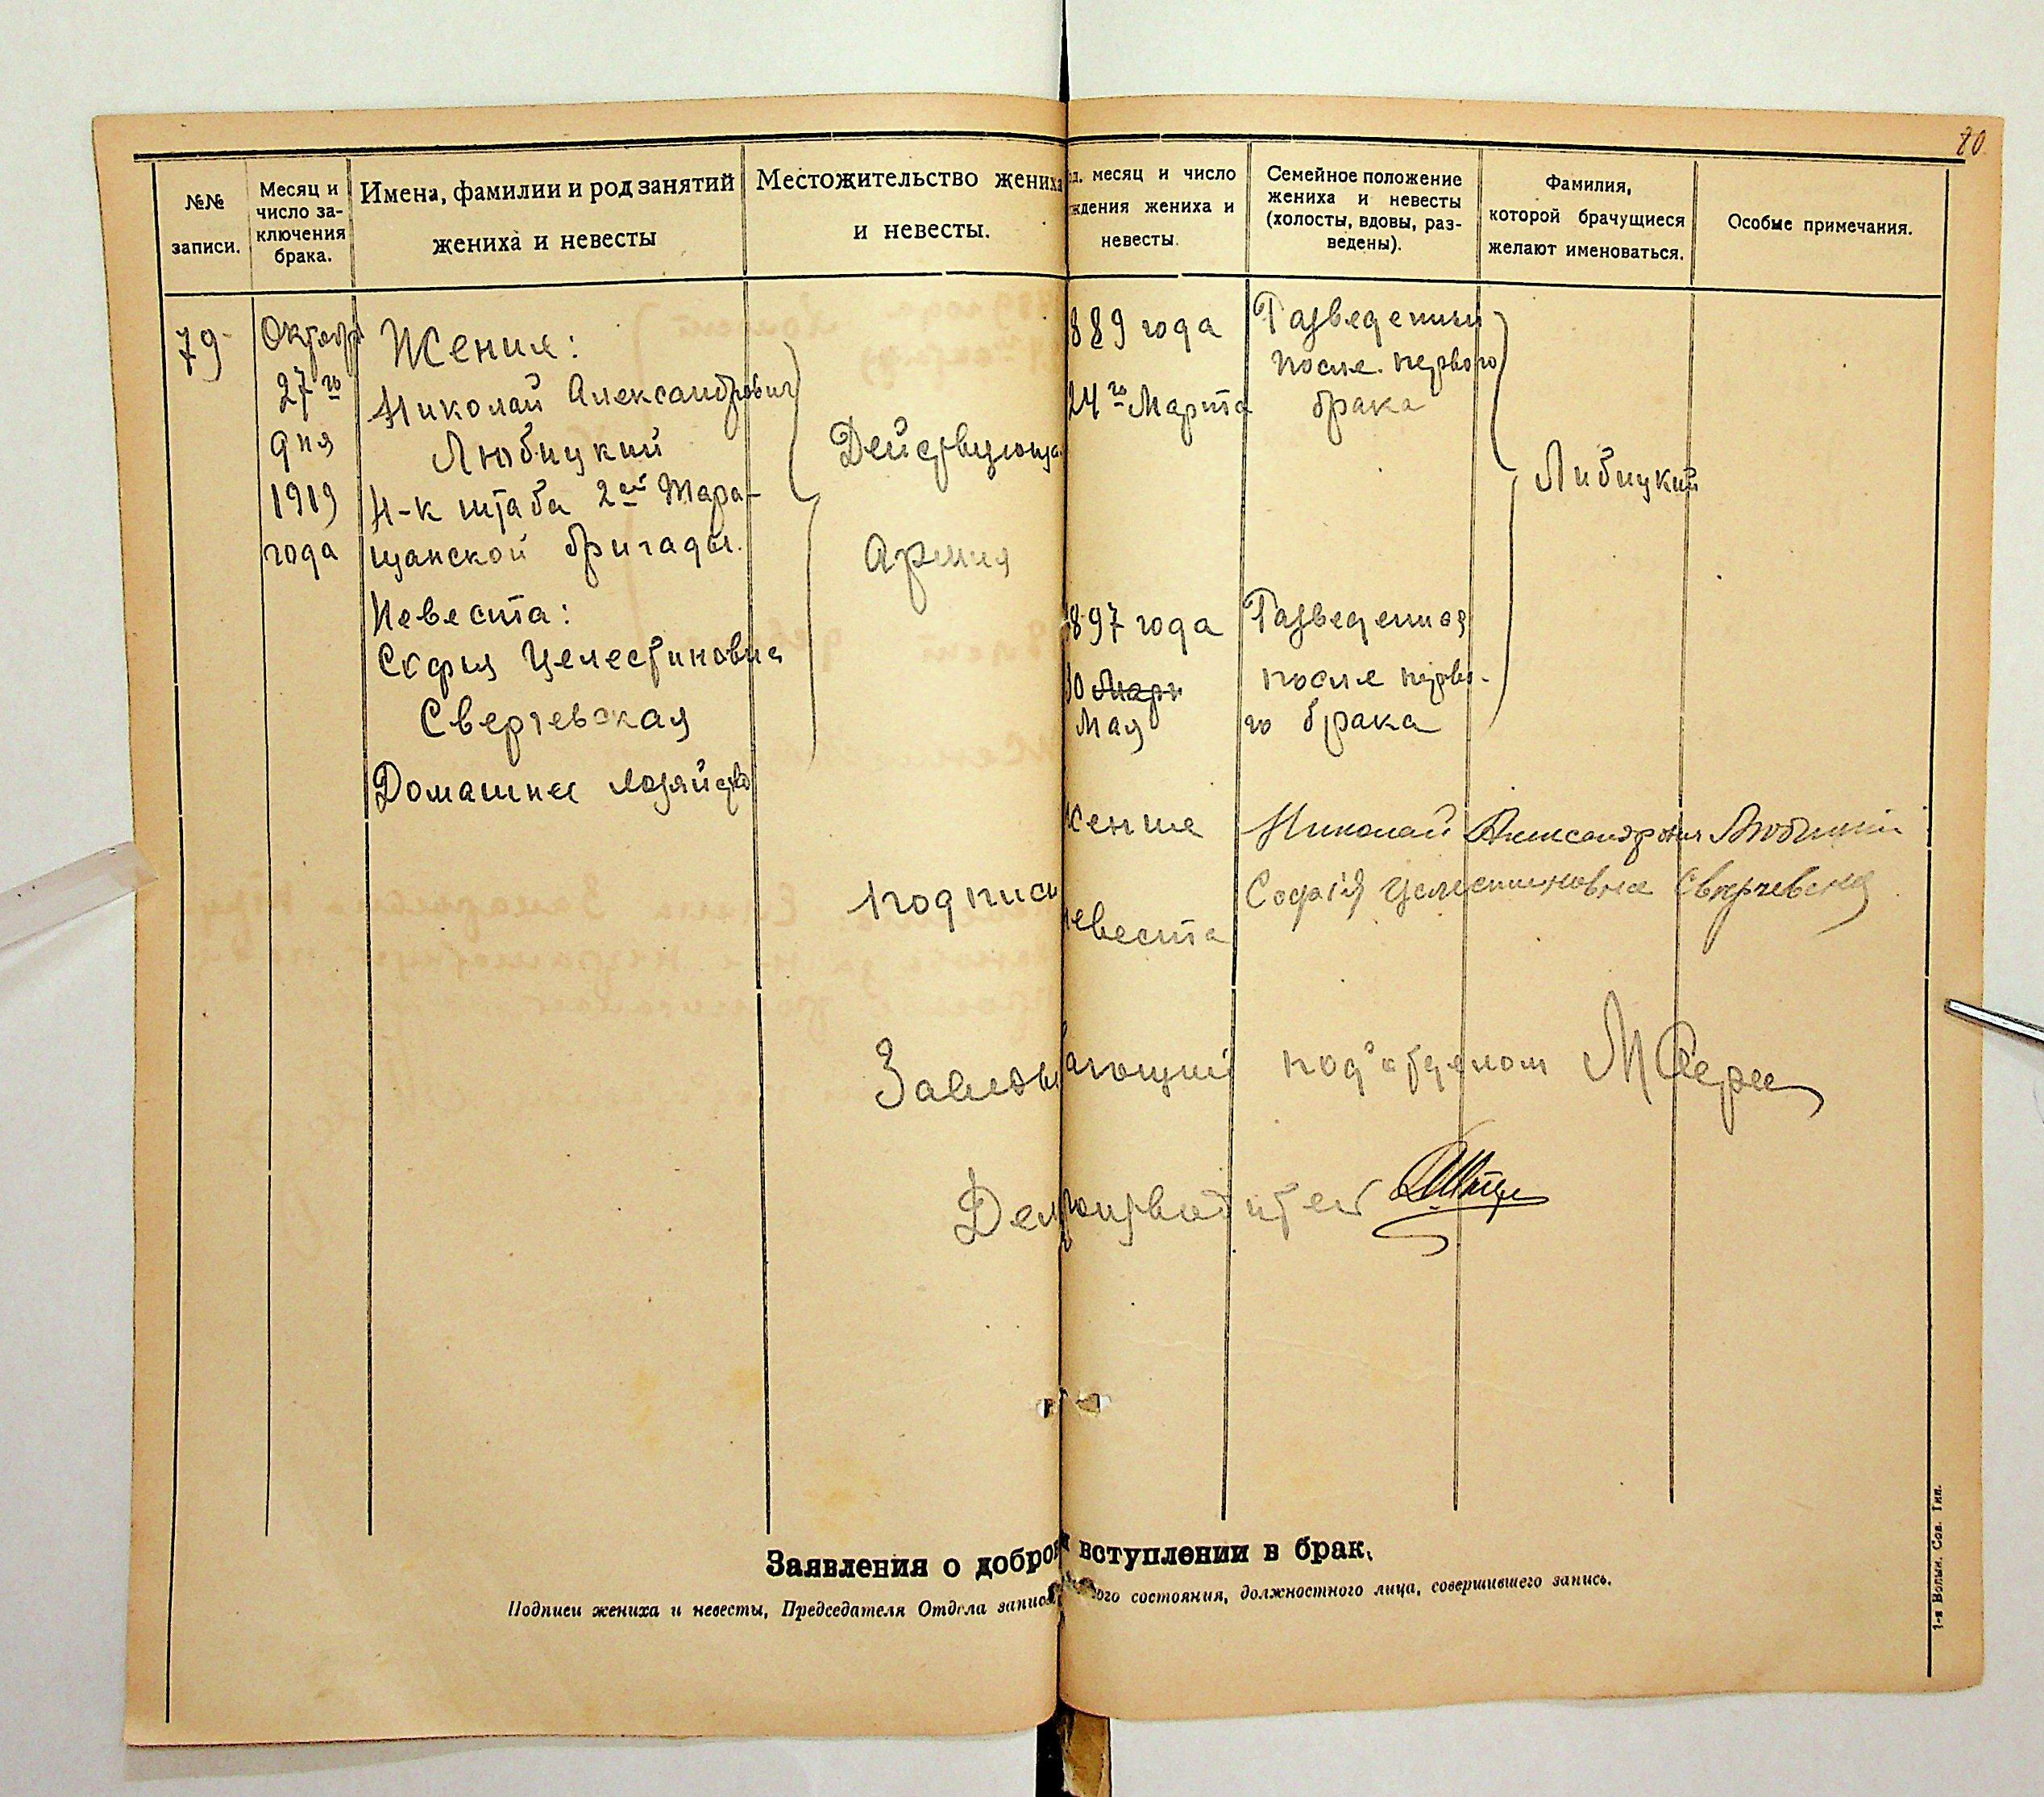 80
№№ записи.
Месяц и число за-
ключения
брака.
Имена, фамилии и род занятий
жениха и невесты
Местожительство жениха
и невесты.
од, месяц и число
ждения жениха и
невесты.
Семейное положение
жениха и невесты
(холосты, вдовы, раз-
ведены).
Фамилия,
которой брачущиеся
желают именоваться.
Особые примечания.
79
Октябр
27го
дня
1919
года
Жених:
Николай Александрович
Любицкий
Н-к штаба 2ой Тара-
щанской бригады.
Невеста:
София Целестиновна
Сверчевская
Домашнее хозяйство
Действующа
Армия
889 года
24го Марта
897 года
30 Март
Мая
Разведенный
после первого
брака
Разведенная
после перво-
го брака
Либицкий
Подписи
жених
Николай Александрович Любицкий
невеста
Софія Целестиновна Сверчевская
Заведывающий под'отделом
Делопроизводитель
Заявления о добров вступлении в брак.
Подписи жениха и невесты, Председателя Отдела записей ого состояния, должностного лица, совершившего запись.
1-я Волын. Сов. Тип.